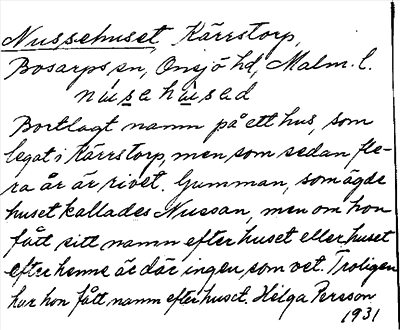 Nussehuset, Kärrstorp,
Bosarps sn, Onsjö hd, Malm. l.
nusahused
Bortlagt namn på ett hus, som
legat i Kärrstorp, men som sedan fle-
ra år är rivet. Gumman, som ägde
huset kallades Nussan, men om hon
fått sitt namn efter huset eller huset
efter henne är där ingen som vet. Troligen
har hon fått namn efter huset. Helga Persson
1931